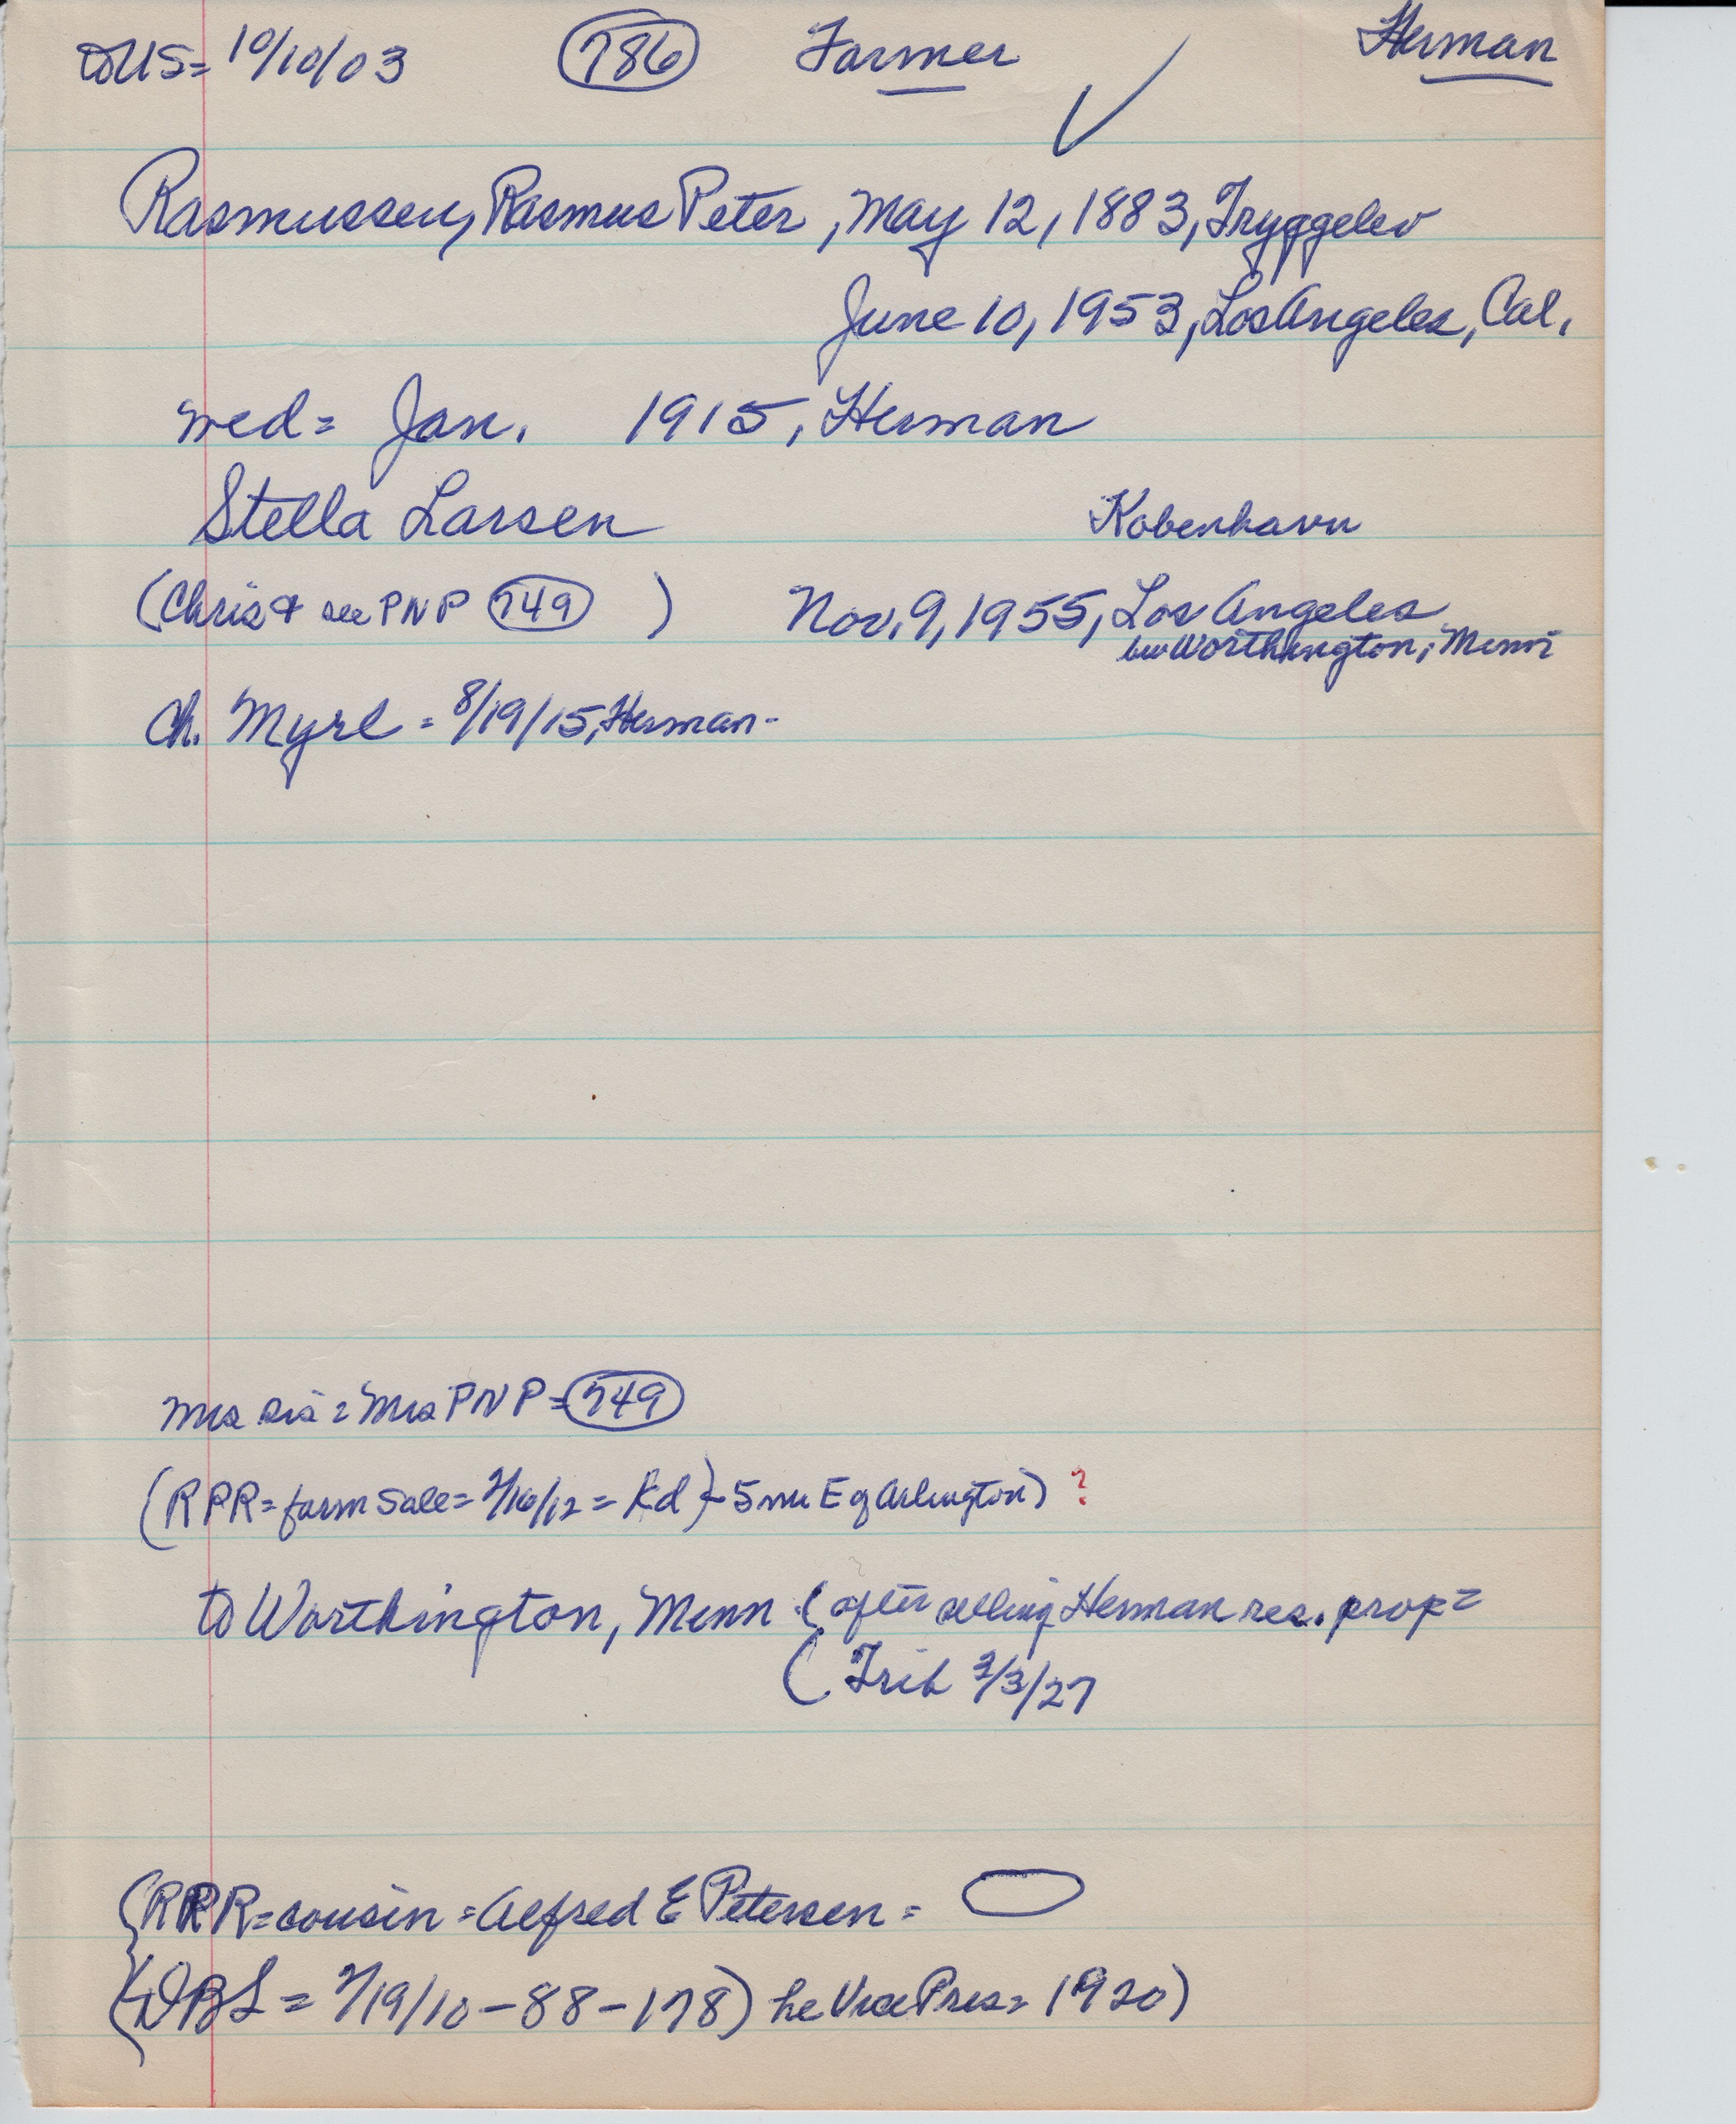 toUS= 10/10/03 786 Farmer Herman
✓
Rasmussen, Rasmus Peter, May 12, 1883, Tryggelev
June 10, 1953, Los Angeles, Cal.
wed= Jan. 1915, Herman
Stella Larsen Kobenhavn
(Chris + see PNP 749 ) Nov. 9, 1955, Los Angeles
bur Worthington, Minn
ch. Myrl = 8/19/15, Herman-
Mrs sis = Mrs PNP = 749
(RPR = farm sale = 2/16/12 = Kd) - 5 mi E of Arlington) ?
to Worthington, Minn. (after selling Herman res. prop =
(Trib 3/3/27
(RPR = cousin = Alfred E Petersen =
(DBL = 7/19/10 - 88 - 178) he Vice Pres = 1920)